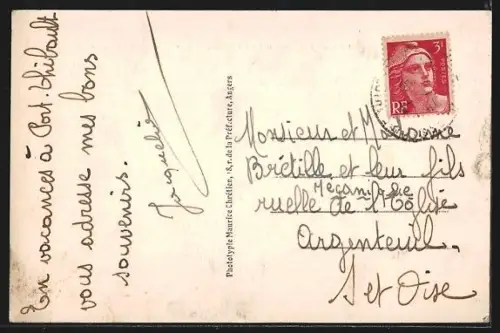 En vacances à Port Thibault
vous adresse mes bons
souvenirs.
Jacqueline
Phototypie Maurice Chrétien, 18, r. de la Préfecture, Angers
3F
RF
POSTES
Monsieur et Madame
Brétille et leur fils
Mécanicie
ruelle de l'Eglise
Argenteuil.
S et Oise